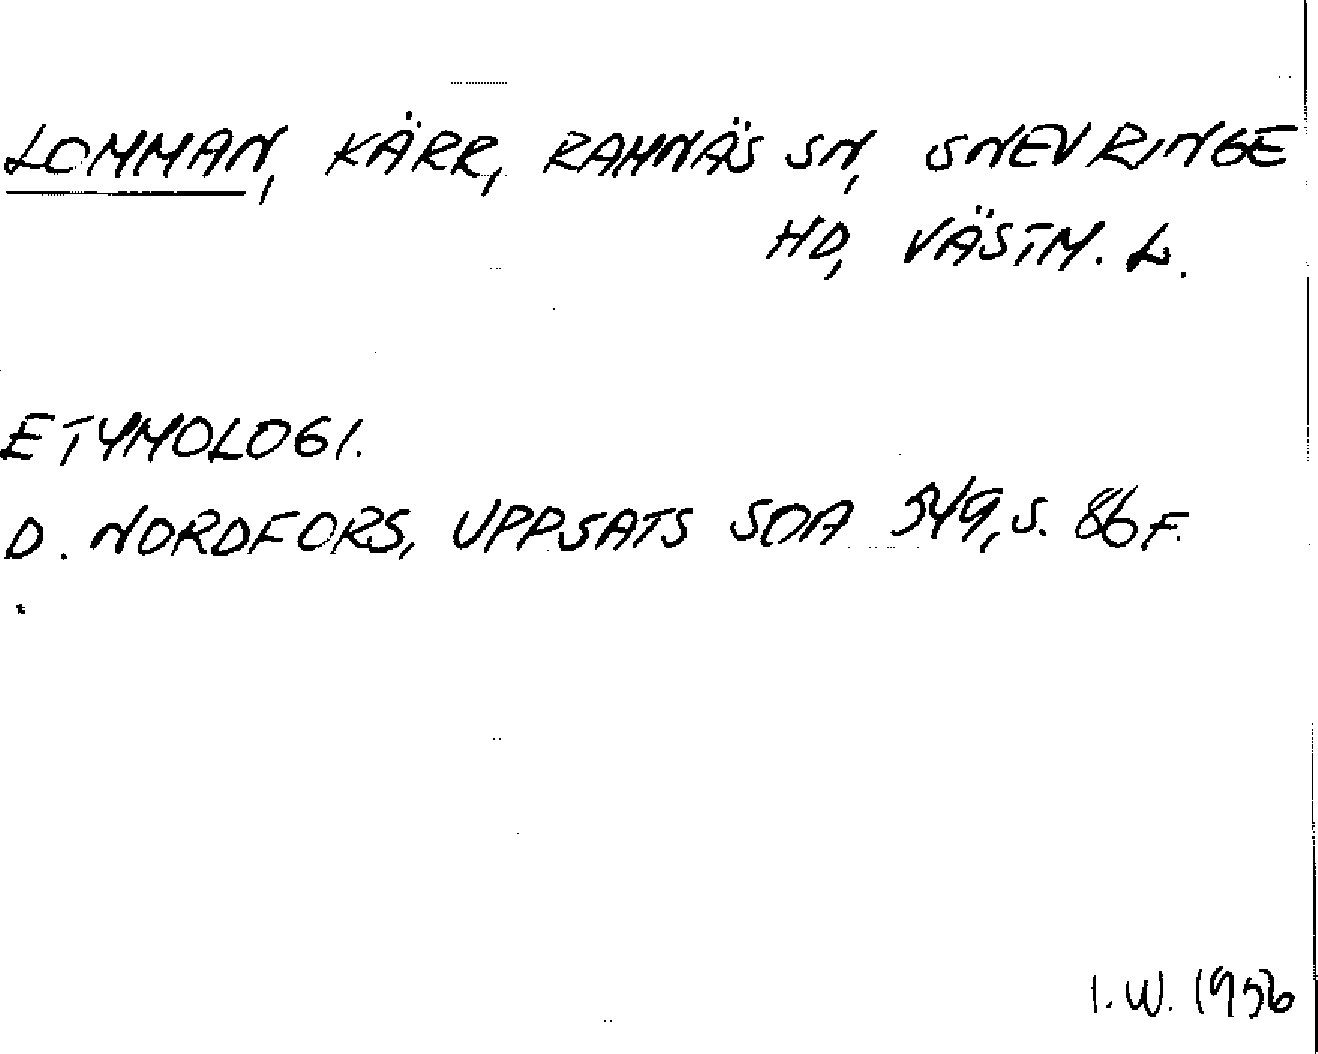 LOMMAN, KÄRR, RAMNÄS SN, SNEVRINGE
HD, VÄSTM. L.
ETYMOLOGI.
D. NORDFORS, UPPSATS SOA 549, S. 86 F.
I. W. 1956